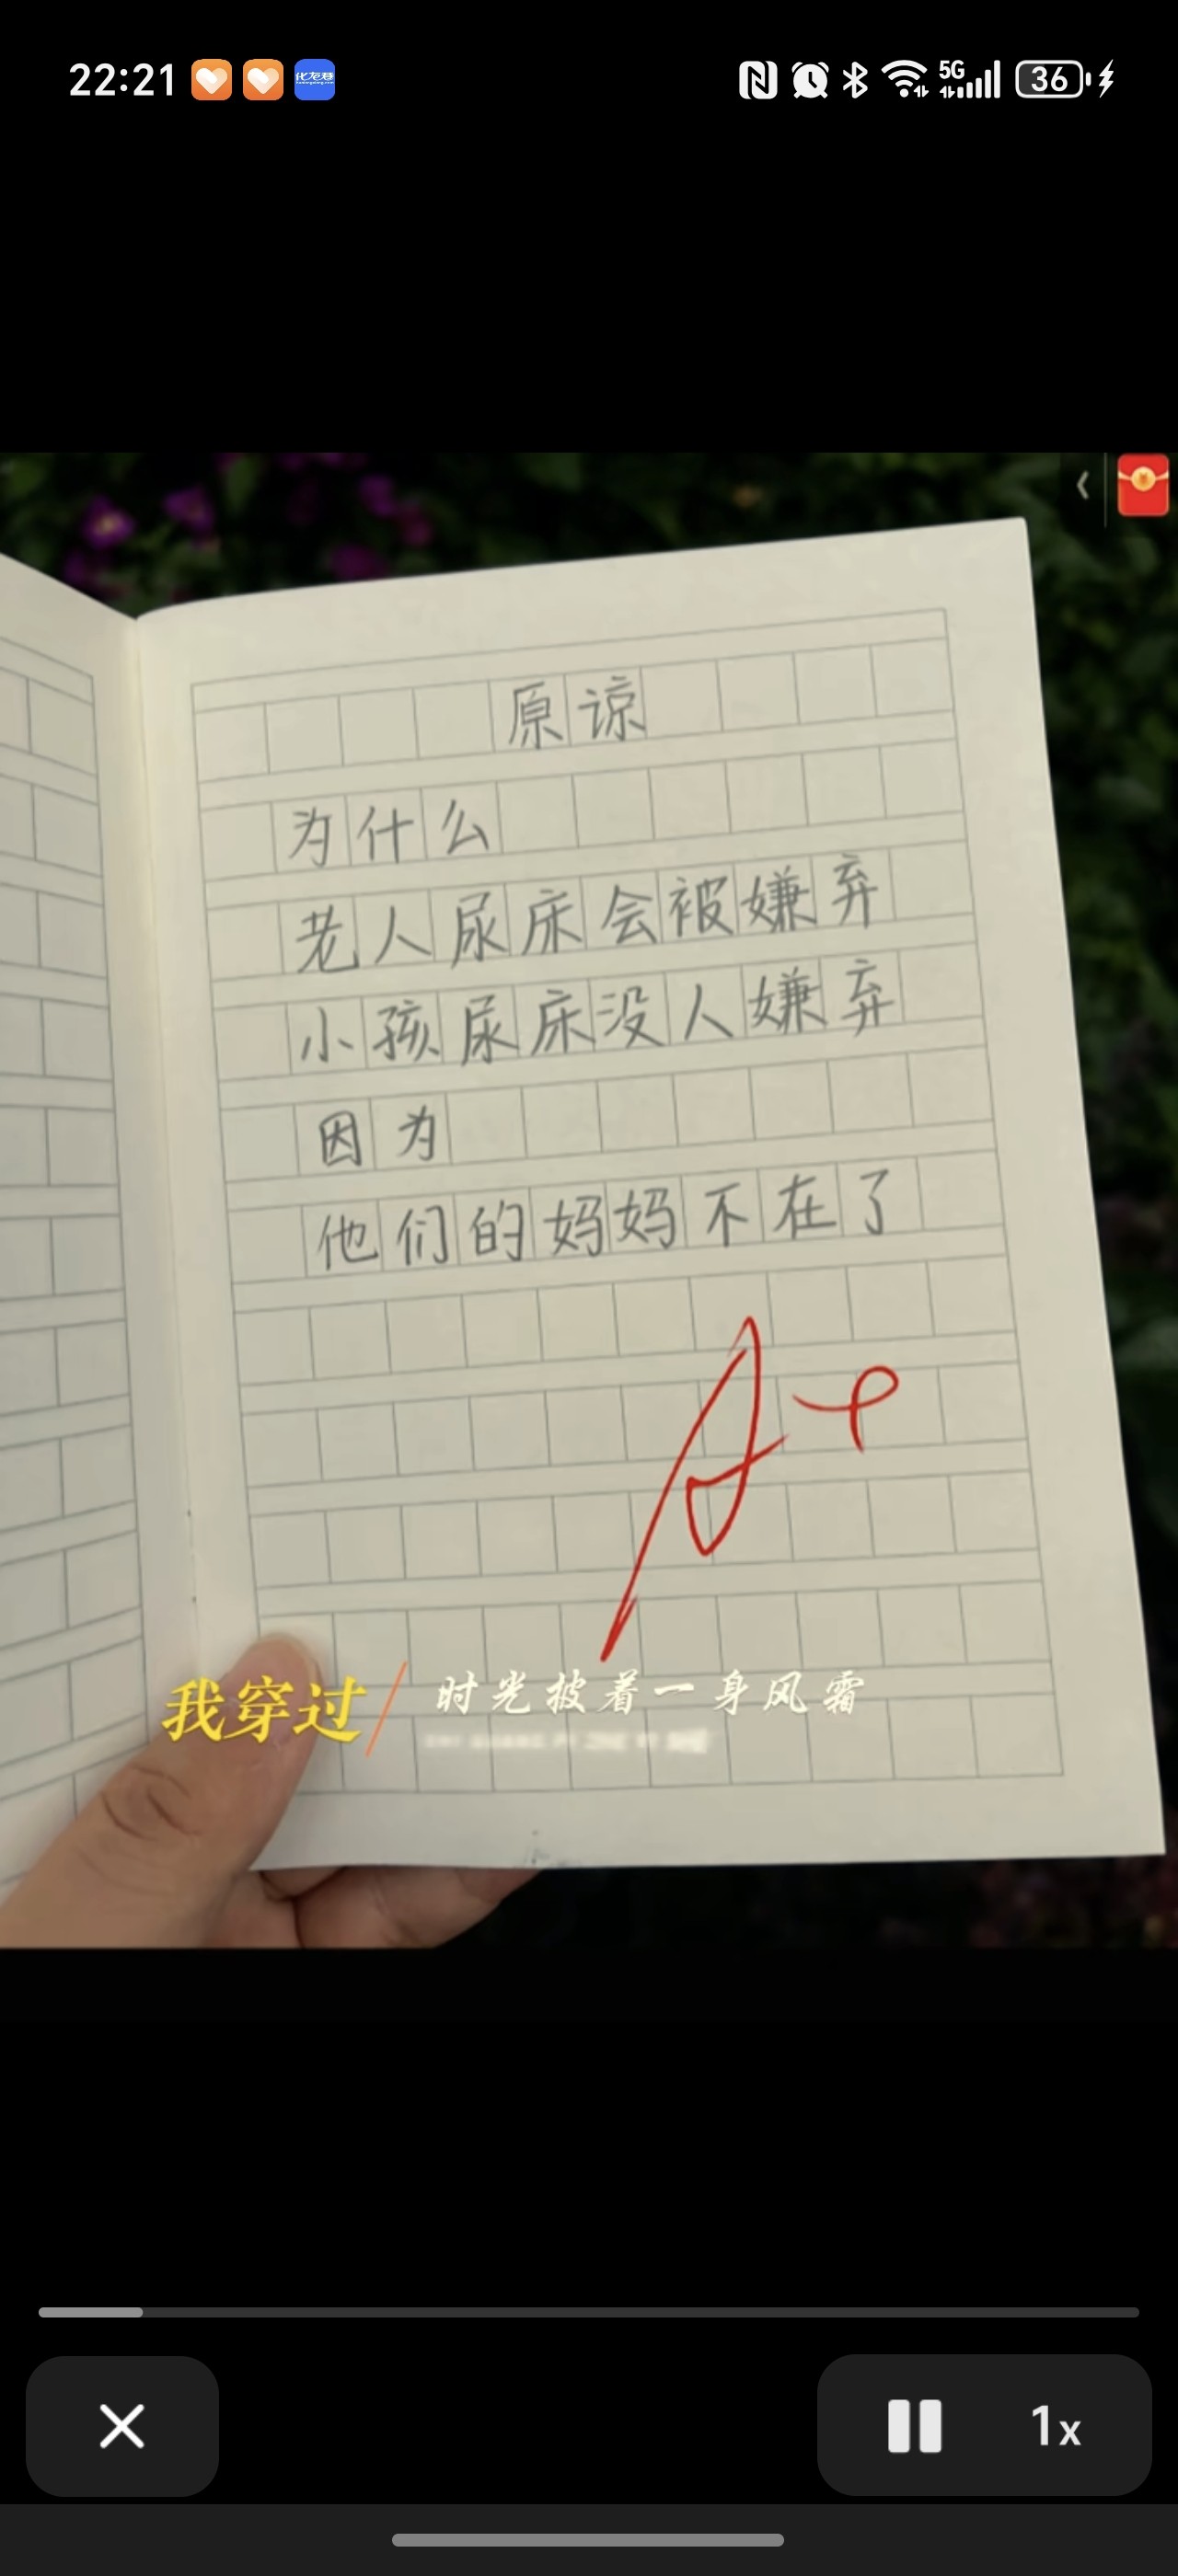 22:21
化龙巷
5G
36
原谅
为什么
老人尿床会被嫌弃
小孩尿床没人嫌弃
因为
他们的妈妈不在了
A+
我穿过 时光披着一身风霜
1x